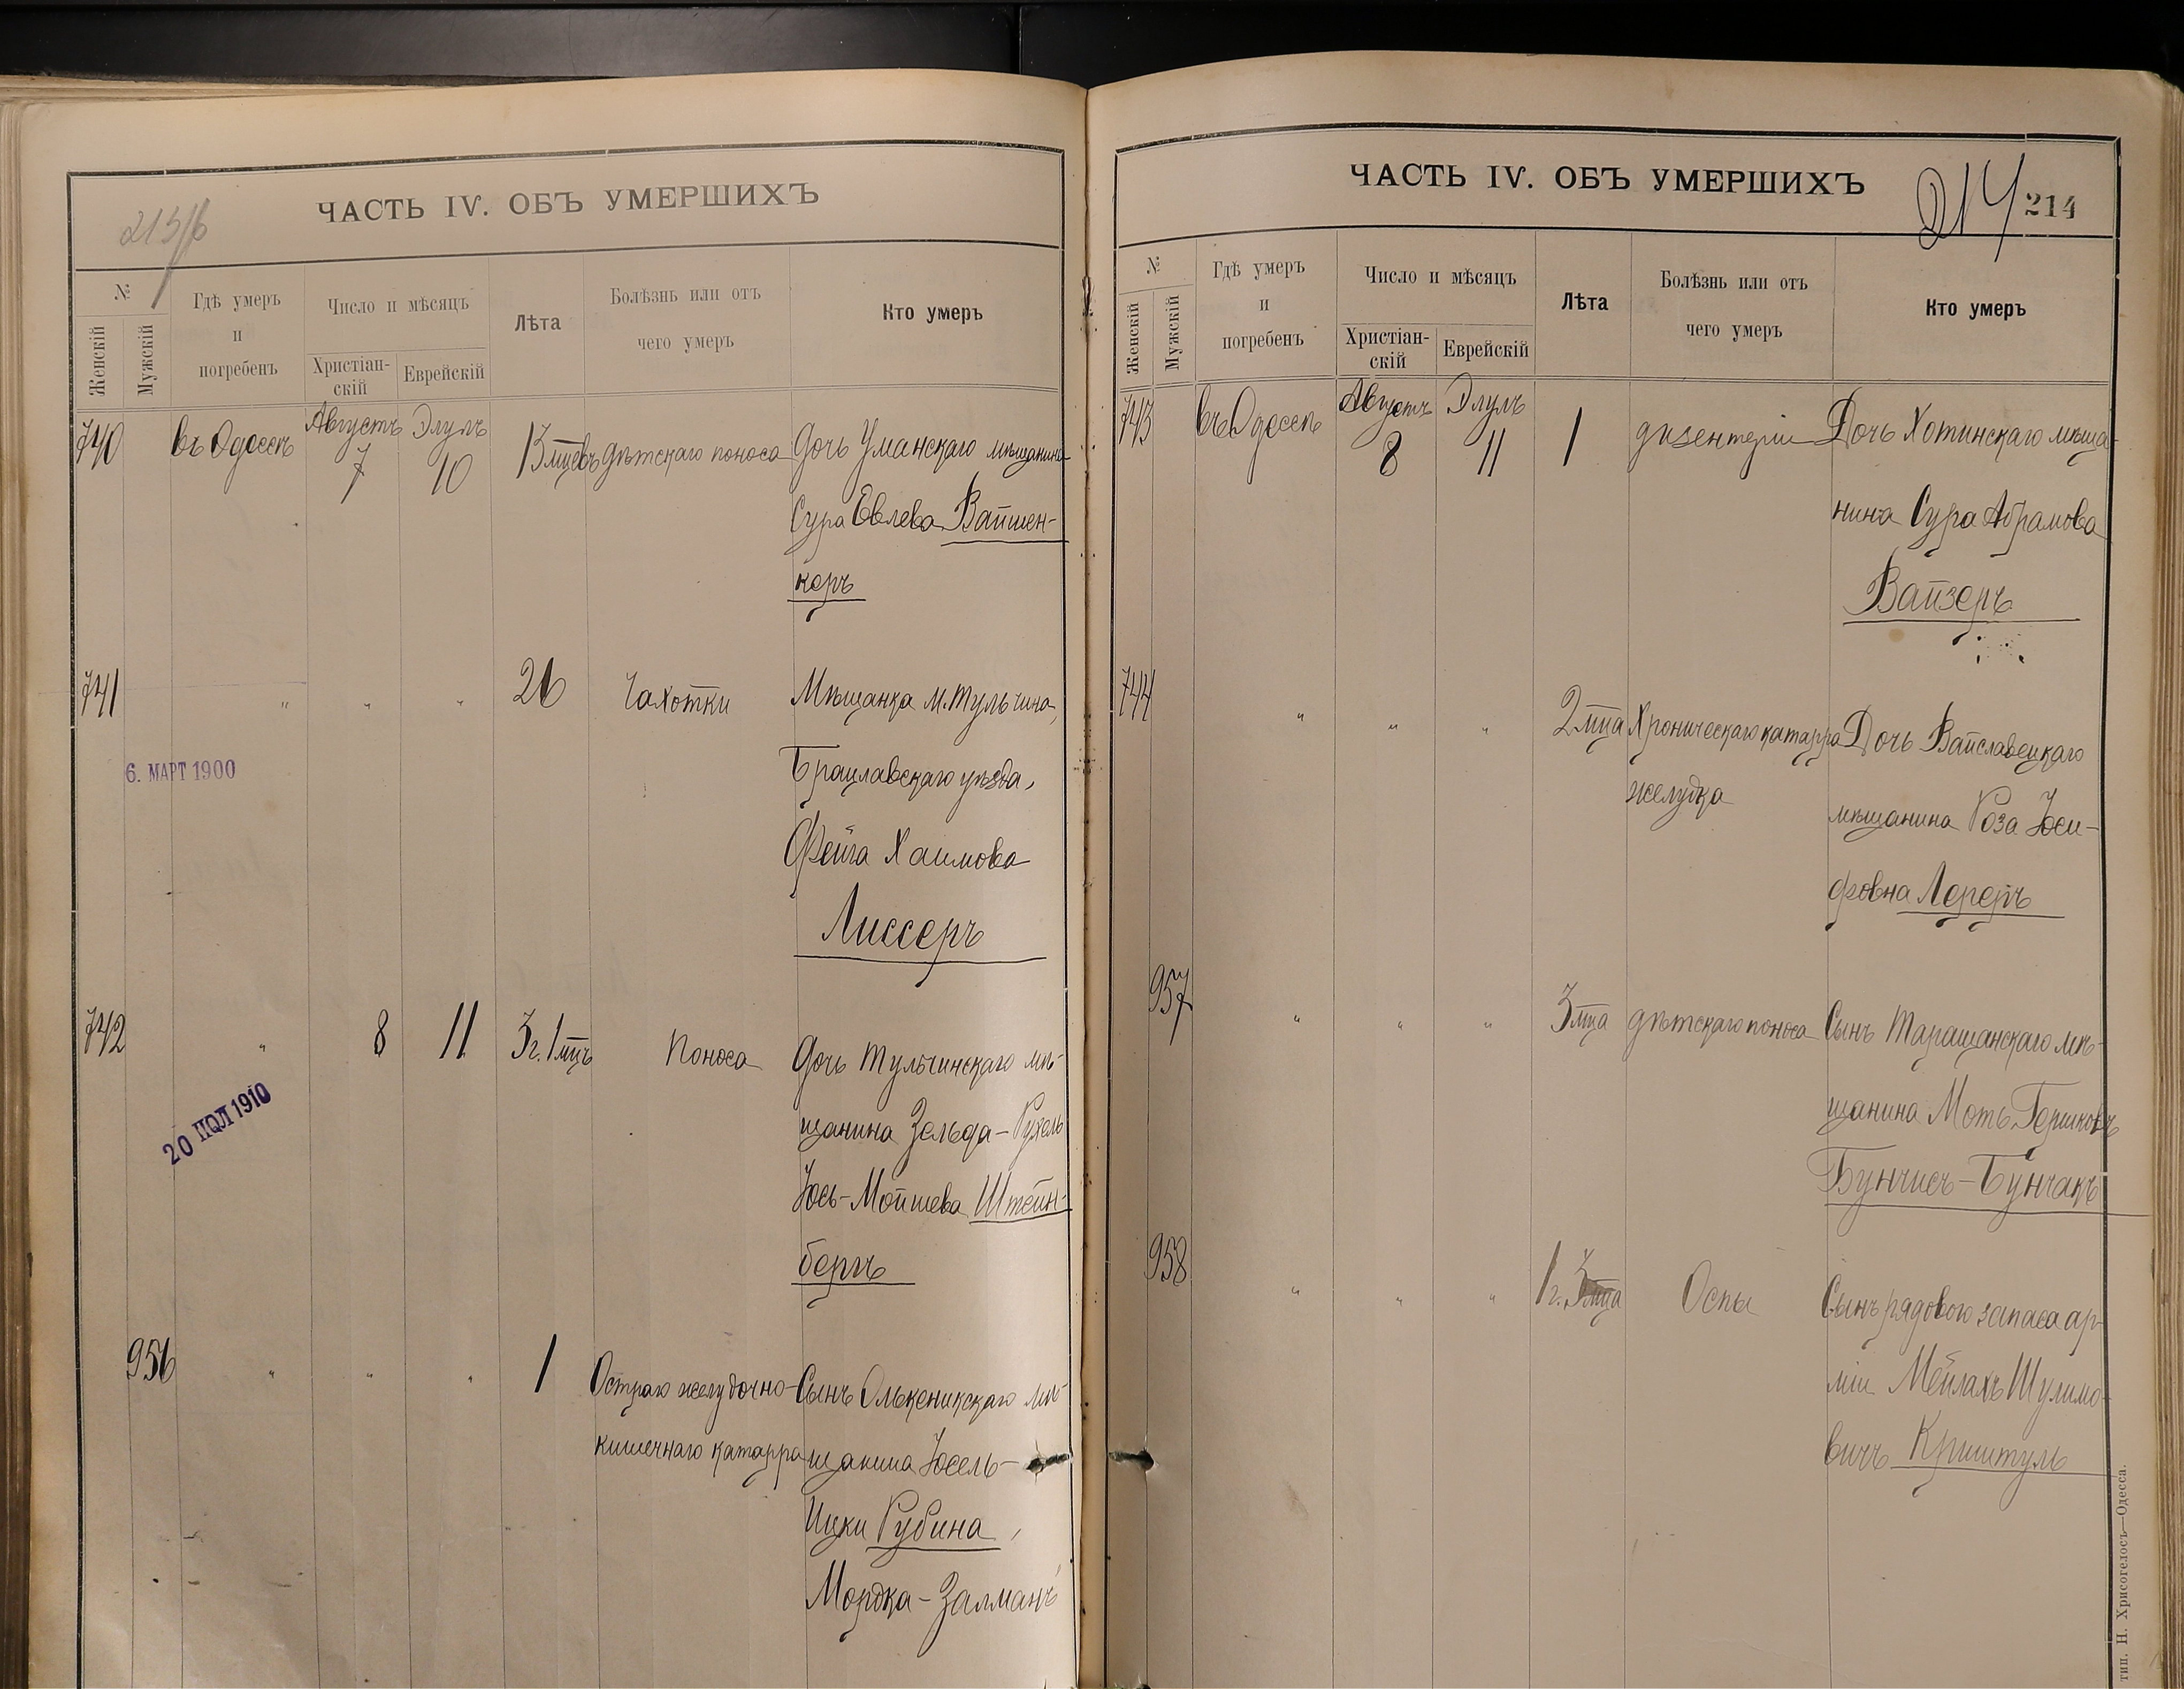 213/б
ЧАСТЬ IV. ОБЪ УМЕРШИХЪ
№
Женскій
Мужскій
Гдѣ умеръ
и
погребенъ
Число и мѣсяцъ
Христіан-
скій
Еврейскій
Лѣта
Болѣзнь или отъ
чего умеръ
Кто умеръ
740 въ Одессѣ Августъ 7 Элулъ 10 13 мцевъ дѣтскаго поноса Дочь Уманскаго мѣщанина
Сура Евлева Вайшен-
керъ
741 " " " 26 Чахотки Мѣщанка м. Тульчина,
Брацлавскаго уѣзда,
Фейга Хаимова
Лиссеръ
6. МАРТ 1900
742 " 8 11 3 г. 1 мцъ Поноса Дочь Тульчинскаго мѣ-
щанина Зельда-Рухель
Юсь-Мойшева Штейн-
бергъ
20 ІЮЛ 1910
956 " " " 1 Остраго желудочно- Сынъ Олькеникскаго мѣ-
кишечнаго катарра щанина Юсель-
Ицки Рубина,
Мордка-Залманъ
ЧАСТЬ IV. ОБЪ УМЕРШИХЪ
214
214
№
Женскій
Мужскій
Гдѣ умеръ
и
погребенъ
Число и мѣсяцъ
Христіан-
скій
Еврейскій
Лѣта
Болѣзнь или отъ
чего умеръ
Кто умеръ
743 въ Одессѣ Августъ 8 Элулъ 11 1 дизентеріи Дочь Хотинскаго мѣща-
нина Сура Абрамова
Вайзеръ
744 " " " 2 мца Хроническаго катарра Дочь Вайславецкаго
желудка мѣщанина Роза Іоси-
фовна Лереръ
957 " " " 3 мца дѣтскаго поноса Сынъ Таращанскаго мѣ-
щанина Моть Гершковъ
Бунчисъ-Бунчакъ
958 " " " 1 г. 3 мца Оспы Сынъ рядового запаса ар-
міи Мейлахъ Шулимо-
вичъ Криштуль
тип. Н. Хрисогелосъ—Одесса.